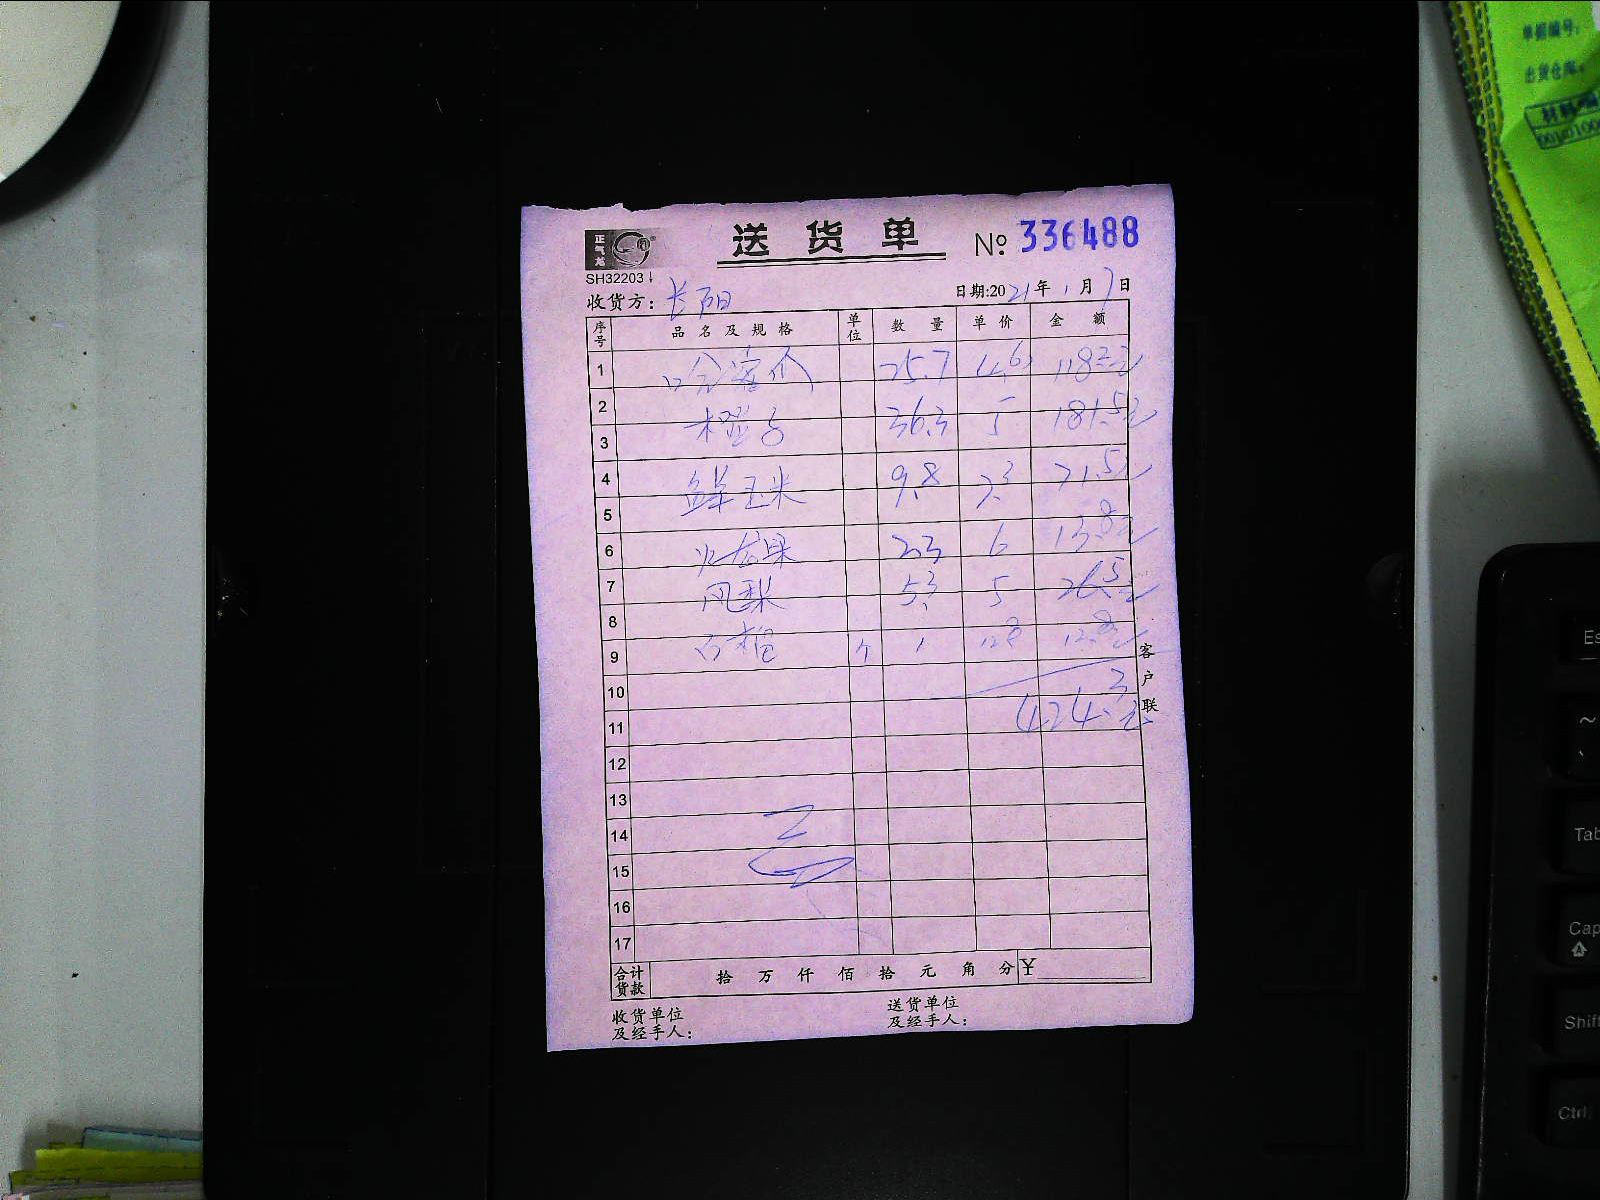 单据编号:
出货仓库:
材料/编
00101000
正气龙
送货单 № 336488
SH32203
收货方: 长阳 日期:2021年1月7日
序号 品名及规格 单位 数量 单价 金额
1 哈密瓜 25.7 4.6 118.2元
2
3 橙子 36.3 5 181.5元
4 鲜玉米 9.8 71.5元
5
6 火龙果 2.3 6 13.8元
7 凤梨 5.3 5 26.5元
8
9 个 1 12.8 12.8元
10
11 424.3元
12
13
14
15
16
17
合计货款 拾万仟佰拾元角分 ¥
客户联
收货单位 送货单位
及经手人: 及经手人:
Es
~
Tab
Cap
Shift
Ctrl